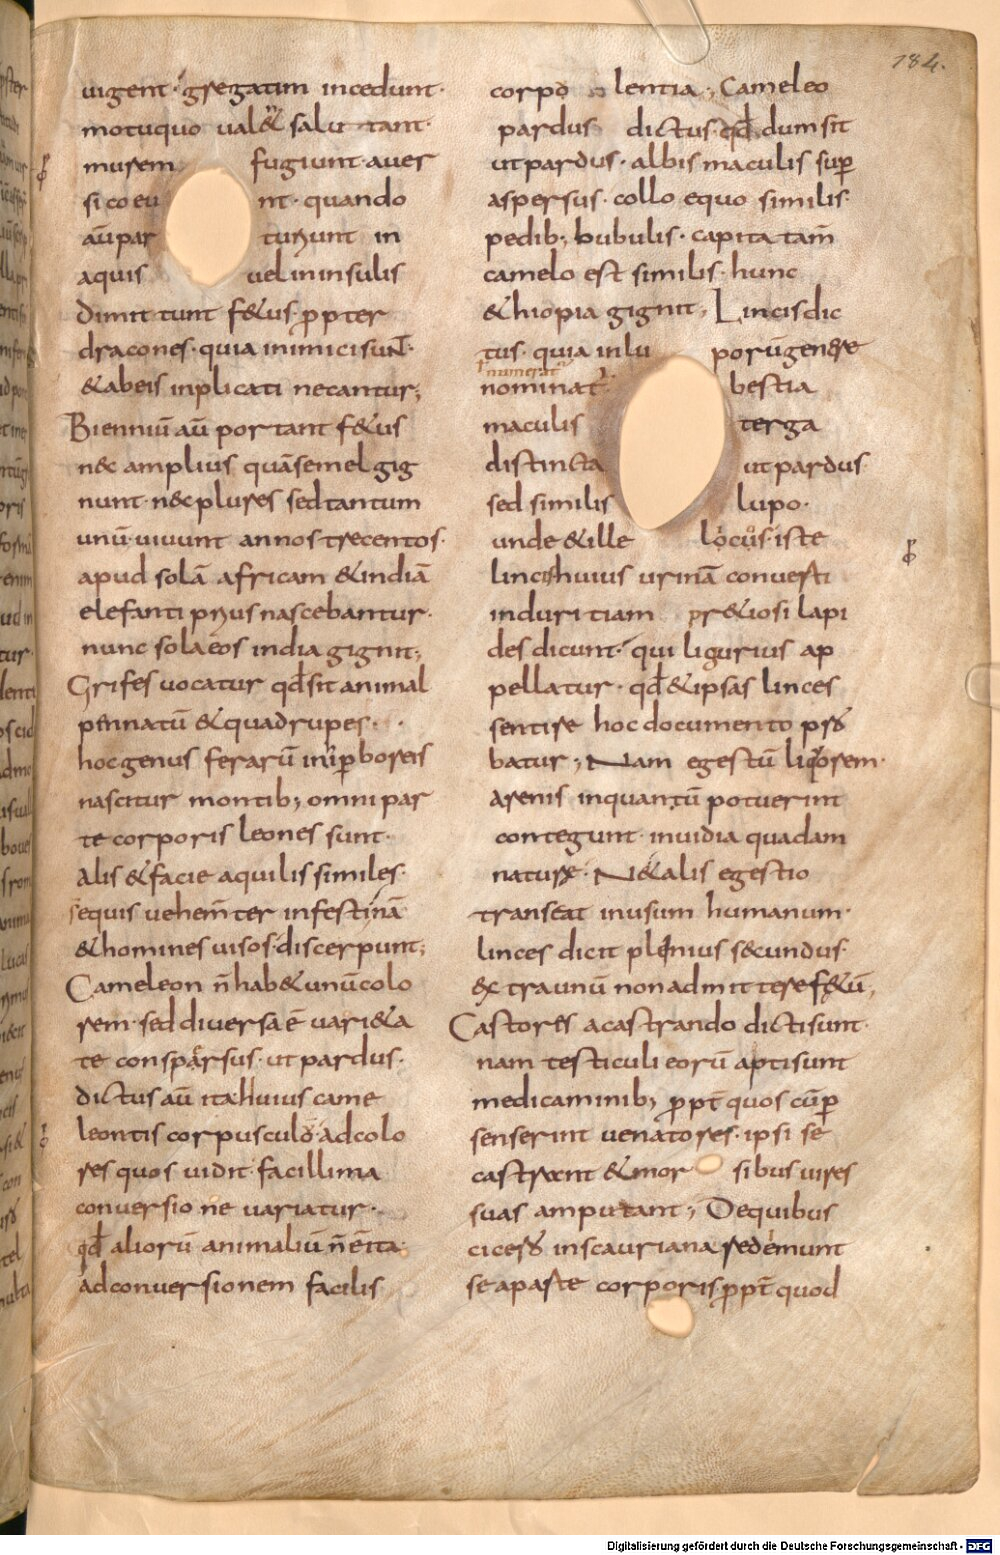 184.
uigent · gregatim incedunt ·
motuquo ual& salutant ·
murem fugiunt · auer
si coeunt · quando
aū par turiunt in
aquis uel in insulis
dimittunt f&us ꝓpter
dracones · quia inimici sunt ·
& ab eis inplicati necantur;
Bienniū aū portant f&us
nec amplius quā semel gig
nunt · nec plures sed tantum
unū · uiuunt annos trecentos ·
apud solā africam & indiā
elefanti prius nascebantur ·
nunc sola eos india gignit;
Grifes uocatur qđ sit animal
pennatū & quadrupes ·
hoc genus ferarū in iꝑboreis
nascitur montib; omni par
te corporis leones sunt ·
Alis & facie aquilis similes ·
equis uehem̄ter infesti nā
& homines uisos discerpunt;
Cameleon n̄ hab& unū colo
rem · sed diuersa ē uari&a
te consparsus · ut pardus ·
dictus aū ita huius came
leontis corpusculo · ad colo
res quos uidit facillima
conuersione uariatur ·
qđ aliorū animaliū n̄ ē ita
ad conuersionem facilis
corpolentia; Cameleo
pardus dictus · qđ dum sit
ut pardus · albis maculis suꝑ
aspersus · collo equo similis ·
pedib; bubulis · capita tam̄
camelo est similis · hunc
&hiopia gignit; Lincis dic
tus · quia in luporū genere
numerat̄
nominat̄ bestia
maculis terga
distincta ut pardus
sed similis lupo ·
unde & ille locus · iste
lincis huius urinā conuerti
in duritiam pr&iosi lapi
des dicunt · qui ligurius ap
pellatur · qđ & ipsas linces
sentire hoc documento pro
batur; Nam egestū liquorem ·
arenis inquantū potuerint
contegunt · inuidia quadam
nature · Ne talis egestio
transeat in usum humanum ·
linces dicit plenius secundus ·
extra unū non admittere f&ū;
Castores a castrando dicti sunt ·
nam testiculi eorū apti sunt
medicaminib; ꝓpt̄ quos cū ꝑ
senserint uenatores · ipsi se
castrant & morsibus uires
suas amputant; De quibus
cicero in scauriana redemunt
se a parte corporis ꝓpt̄ quod
Digitalisierung gefördert durch die Deutsche Forschungsgemeinschaft - DFG